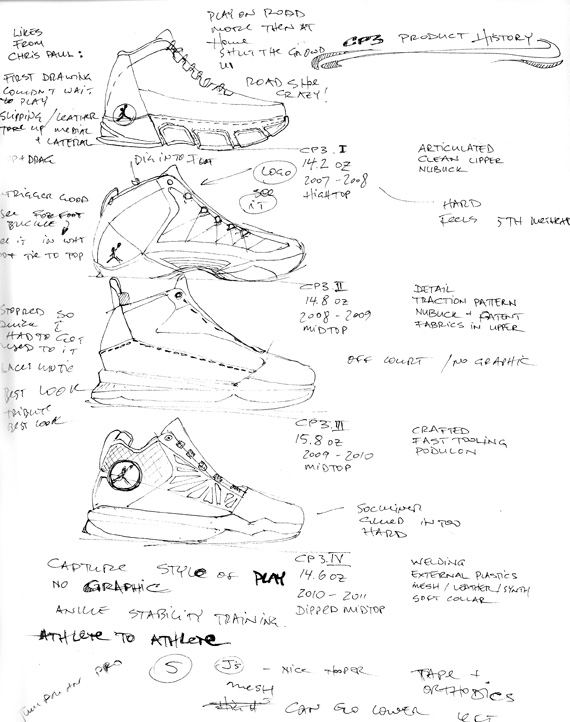 CP3 PRODUCT HISTORY
LIKES
FROM
CHRIS PAUL:
PLAY ON ROAD
MORE THEN AT
HOME
STILL THE GROUND
ROAD SHOE
CRAZY!
FIRST DRAWING
COULDN'T WAIT
TO PLAY
SLIPPING / LEATHER
TORE UP MEDIAL
+ LATERAL
CP3.I
14.2 OZ
2007-2008
HIGHTOP
ARTICULATED
CLEAN UPPER
NUBUCK
DIG INTO
LOGO
SEE
IT
HARD
FEELS 5TH
TRIGGER GOOD
SEE FOR FOOT
BUCKLE
TIE TO TOP
CP3 II
14.8 OZ
2008-2009
MIDTOP
DETAIL
TRACTION PATTERN
NUBUCK + PATENT
FABRICS IN UPPER
STOPPED SO
QUICK I
HAD TO GET
USED TO IT
OFF COURT / NO GRAPHIC
BEST LOOK
TRIBUTE
BEST LOOK
CP3.III
15.8 OZ
2009-2010
MIDTOP
CRAFTED
FAST TOOLING
PODULON
SOCKLINER
GLUED IN TOO
HARD
CP3.IV
14.6 OZ
2010-2011
DIPPED MIDTOP
WELDING
EXTERNAL PLASTICS
MESH / LEATHER / SYNTH
SOFT COLLAR
CAPTURE STYLE OF PLAY
NO GRAPHIC
ANKLE STABILITY TRAINING.
ATHLETE TO ATHLETE
S
J's
- NICK HOOPER
TAPE +
ORTHODICS
MESH
CAN GO LOWER